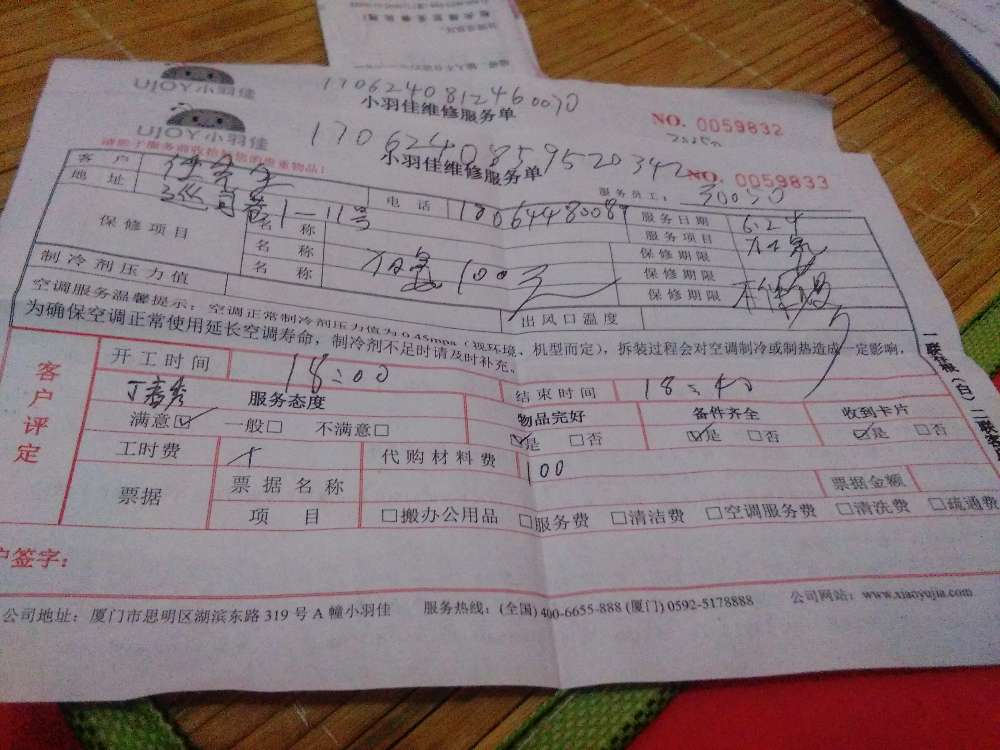 UJOY小羽佳
1706240812460030
小羽佳维修服务单
NO. 0059832
UJOY小羽佳
1706240859520342
小羽佳维修服务单
NO. 0059833
服务员工: 30050
客户
电话
服务日期 6.24
地址
1-11号
服务项目 加氟
保修项目
名称
保修期限
名称 加氟100元
保修期限
制冷剂压力值
名称
保修期限 不保
出风口温度
空调服务温馨提示:空调正常制冷剂压力值为0.45mpa(视环境、机型而定),拆装过程会对空调制冷或制热造成一定影响,
为确保空调正常使用延长空调寿命,制冷剂不足时请及时补充。
客户评定
开工时间 18:00
结束时间 18:40
服务态度
物品完好
备件齐全
收到卡片
满意☑ 一般□ 不满意□
☑是 □否
☑是 □否
☑是 □否
工时费
代购材料费 100
票据
票据名称
票据金额
项目
□搬办公用品 □服务费 □清洁费 □空调服务费 □清洗费 □疏通费
户签字:
公司地址:厦门市思明区湖滨东路319号A幢小羽佳
服务热线:(全国)400-6655-888(厦门)0592-5178888
公司网站:www.xiaoyujia.com